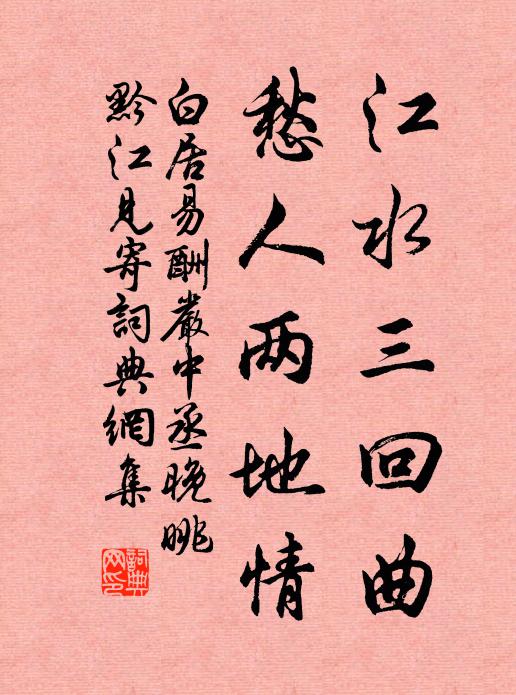 江水三回曲
愁人两地情
白居易酬嚴中丞晚眺
黔江見寄詞典網集
詞典
网印